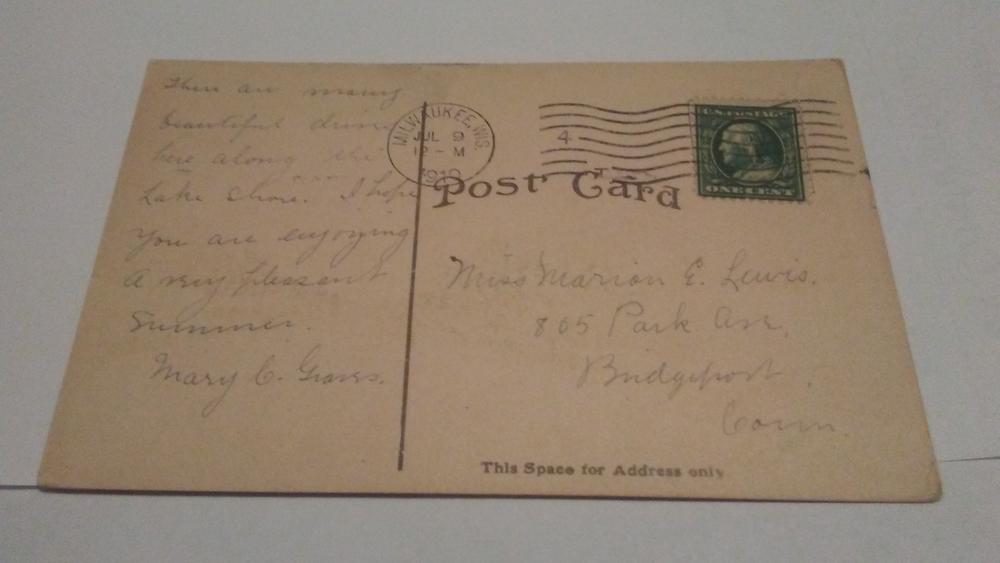 There are many
beautiful drives
here along the
Lake Shore. I hope
You are enjoying
A very pleasant
Summer.
Mary C. Graves.
MILWAUKEE, WIS.
JUL 9
12-M
1910
4
U.S. POSTAGE
ONE CENT
Post Card
Miss Marion E. Lewis.
805 Park Ave.
Bridgeport.
Conn.
This Space for Address only